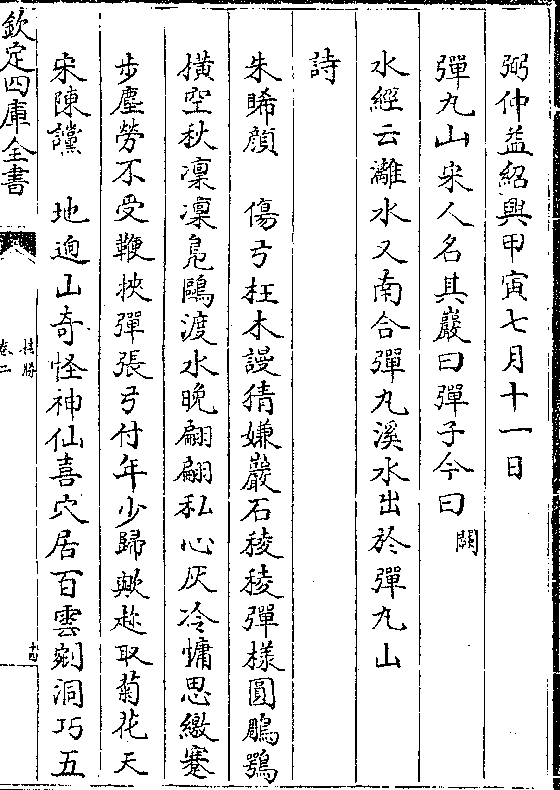 弼仲益紹興甲寅七月十一日
彈丸山宋人名其巖曰彈子今曰闕
水經云灕水又南合彈丸溪水出於彈丸山
詩
朱晞顔　傷弓枉木謾猜嫌巖石稜稜彈樣圓鵰鶚
橫空秋凜凜鳬鷗渡水晚翩翩私心厌冷慵思繳蹇
步塵勞不受鞭挾彈張弓付年少歸歟趂取菊花天
宋陳讜　地迥山奇怪神仙喜穴居百雲剜洞巧五
欽定四庫全書
桂勝
卷二
十四